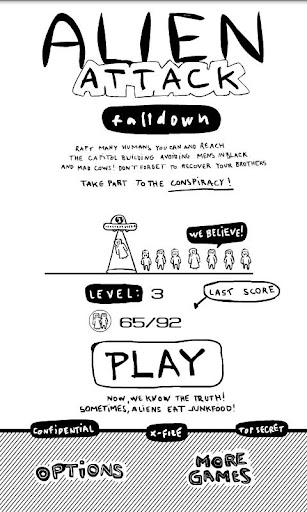 ALIEN
ATTACK
falldown
RAPT MANY HUMANS YOU CAN AND REACH
THE CAPITOL BUILDING AVOIDING MENS IN BLACK
AND MAD COWS! DON'T FORGET TO RECOVER YOUR BROTHERS
TAKE PART TO THE CONSPIRACY!
WE BELIEVE!
LEVEL: 3
LAST SCORE
65/92
PLAY
NOW, WE KNOW THE TRUTH!
SOMETIMES, ALIENS EAT JUNKFOOD!
CONFIDENTIAL X-FILE TOP SECRET
OPTIONS
MORE
GAMES